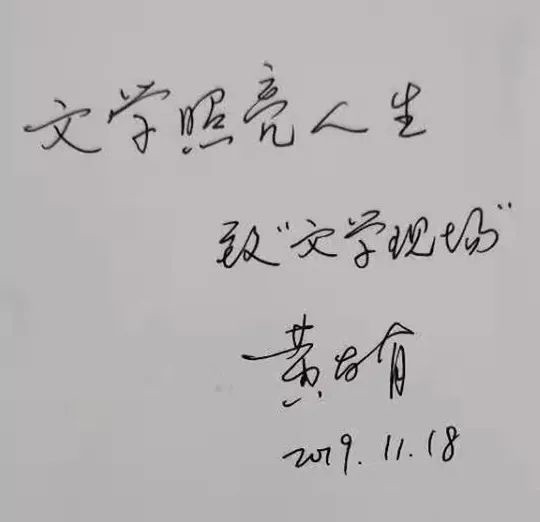 文学照亮人生
致“文学现场”
黄发有
2019.11.18